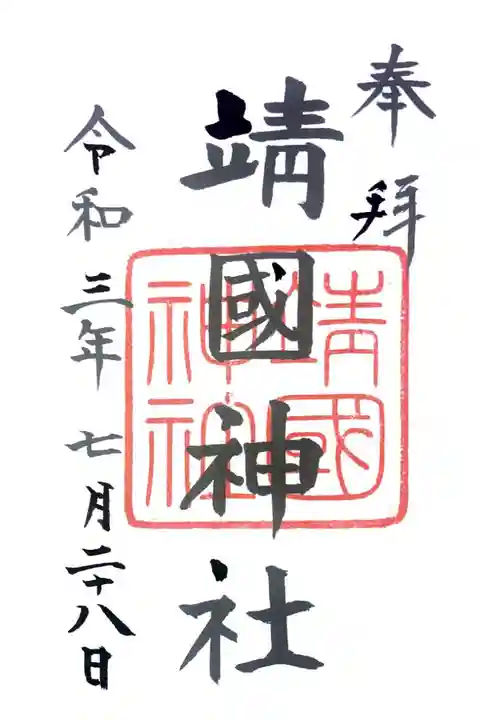 奉拝
靖國神社
靖國
神社
令和三年七月二十八日